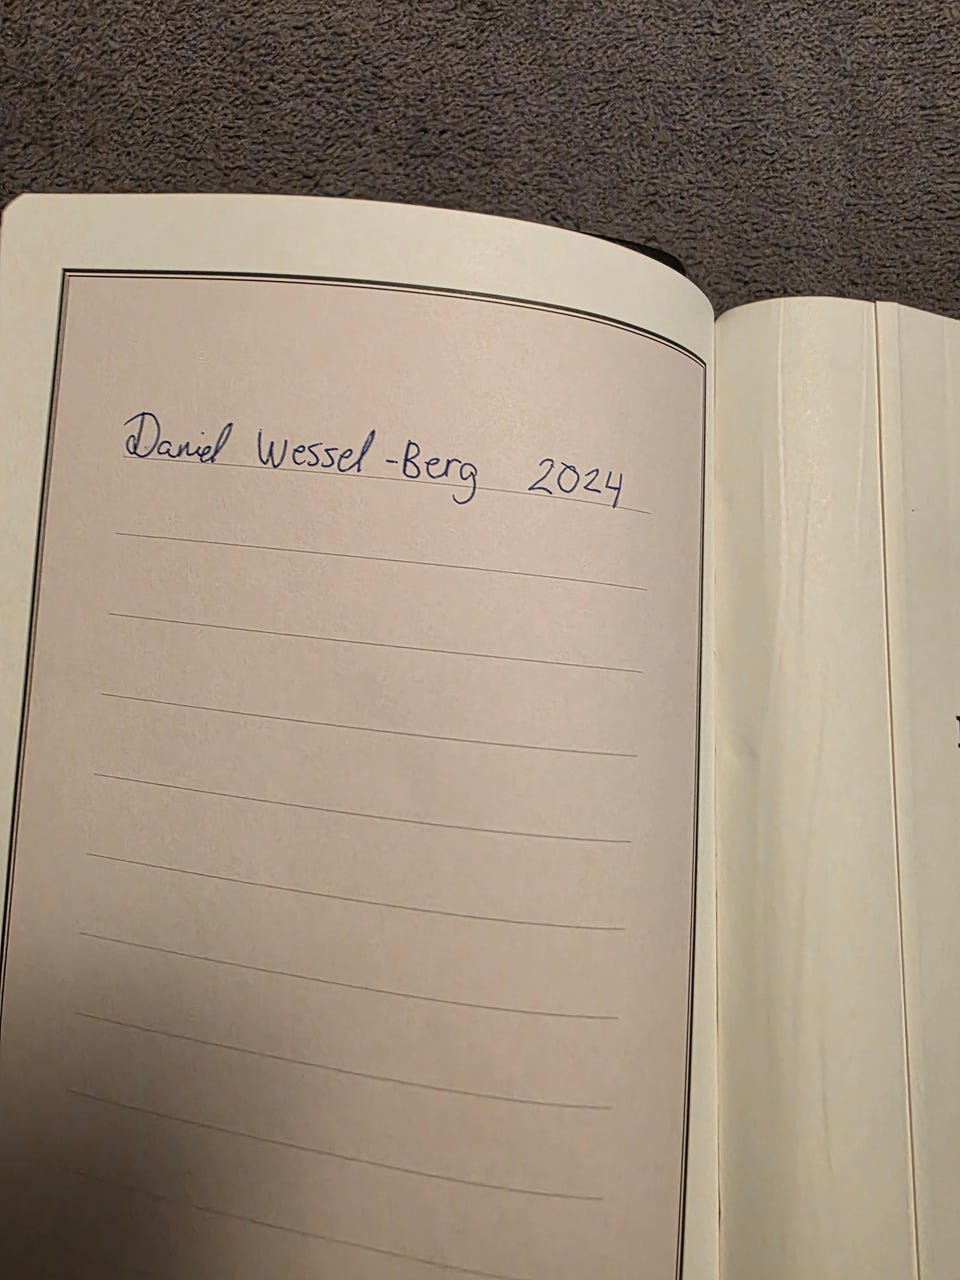 Daniel Wessel-Berg 2024